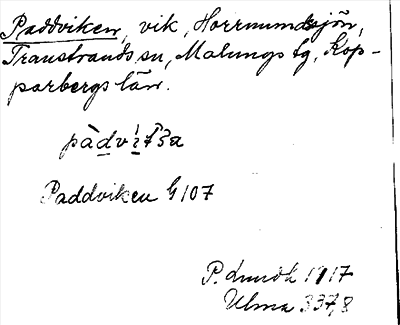 Paddviken, vik, Horrmundsjön,
Transtrands sn, Malungs tg, Kop-
parbergs län.
Paddviken G 107
P. Lundk 1917
Ulma 337,8